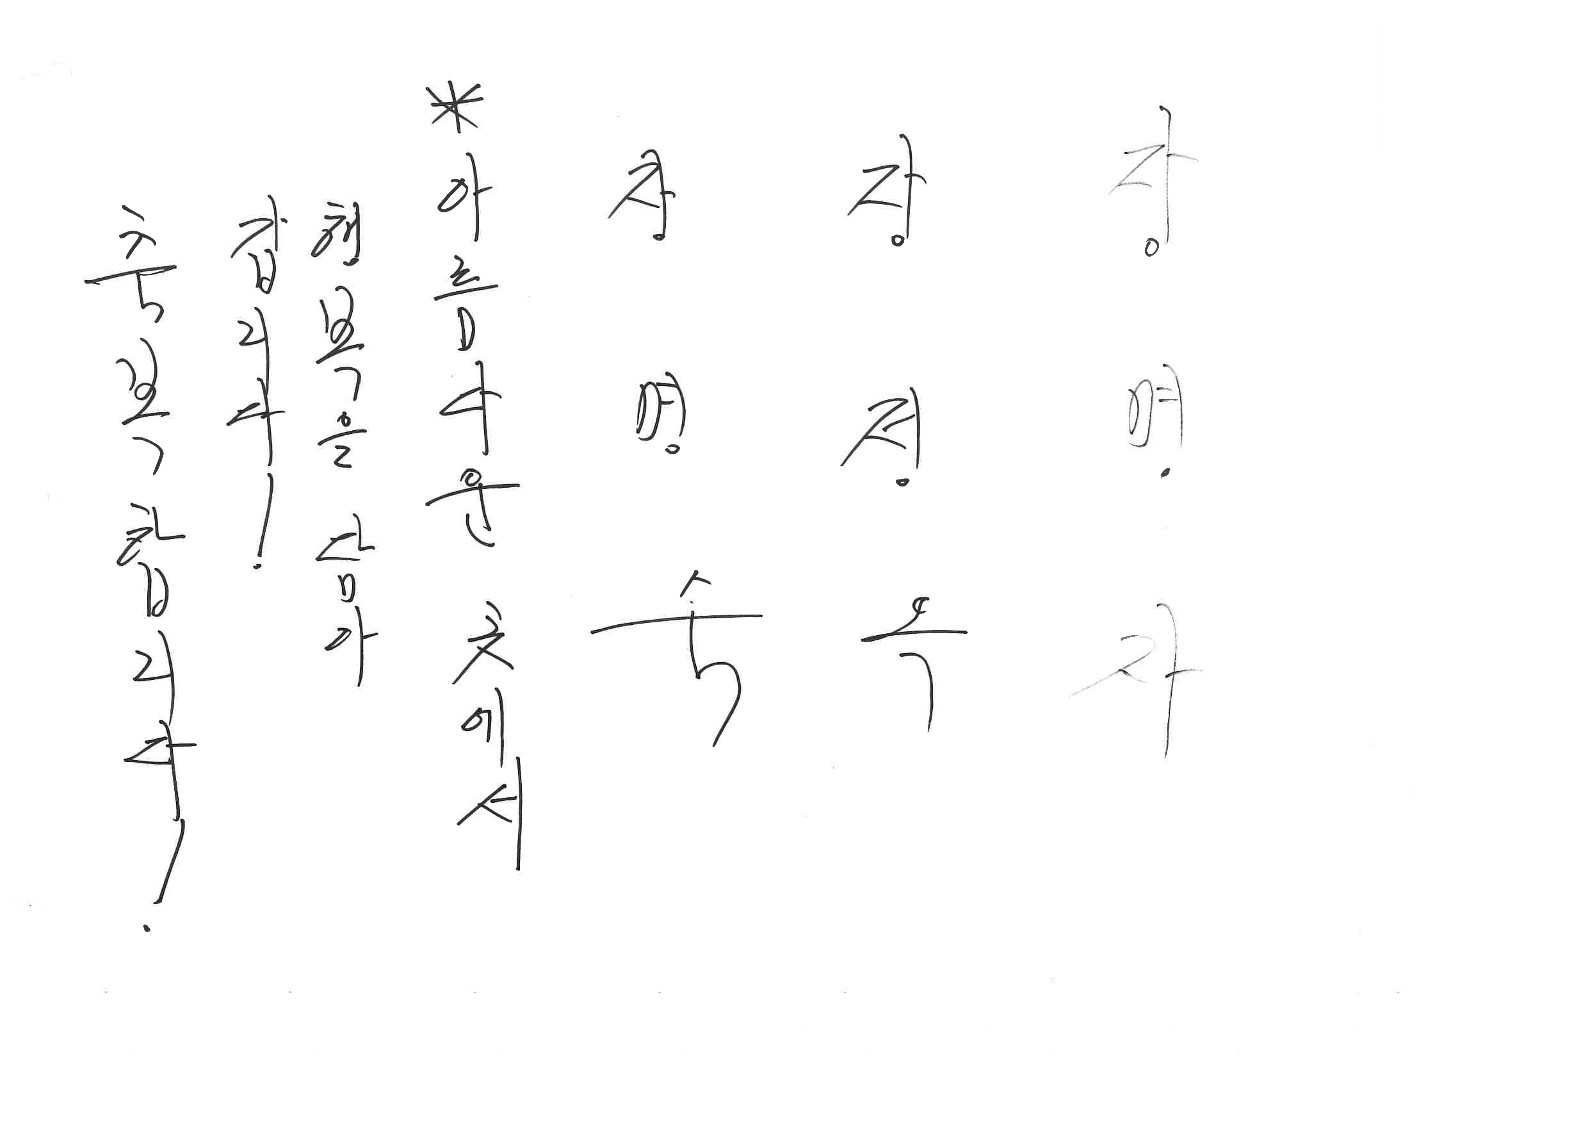 장명자
장정옥
장명숙
*아름다운 곳에서
행복을 담아
갑니다!
축복합니다!